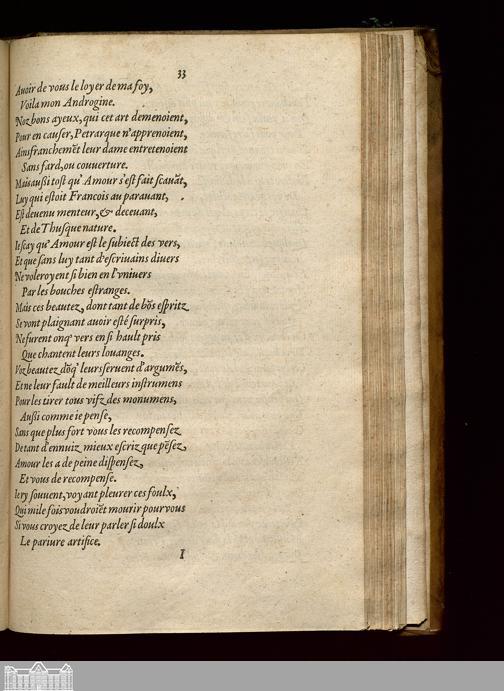 33
Auoir de vous le loyer de ma foy,
Voila mon Androgine.
Noz bons ayeux, qui cet art demenoient,
Pour en causer, Petrarque n'apprenoient,
Ains franchemēt leur dame entretenoient
Sans fard, ou couuerture.
Mais aussi tost qu'Amour s'est fait scauāt,
Luy qui estoit Francois au parauant,
Est deuenu menteur, & deceuant,
Et de Thusque nature.
Ie scay qu'Amour est le subiect des vers,
Et que sans luy tant d'escriuains diuers
Ne voleroyent si bien en l'vniuers
Par les bouches estranges.
Mais ces beautez, dont tant de bōs espritz
Se vont plaignant auoir esté surpris,
Ne furent onq' vers en si hault pris
Que chantent leurs louanges.
Voz beautez dōq' leur seruent d'argumēs,
Et ne leur fault de meilleurs instrumens
Pour les tirer tous vifz des monumens,
Aussi comme ie pense,
Sans que plus fort vous les recompensez
De tant d'ennuiz mieux escriz que pēsez,
Amour les a de peine dispensez,
Et vous de recompense.
Ie ry souuent, voyant pleurer ces foulx,
Qui mile fois voudroiēt mourir pour vous
Si vous croyez de leur parler si doulx
Le pariure artifice.
I